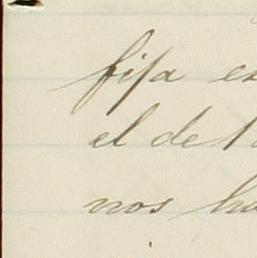 fija es
el de l
nos ha